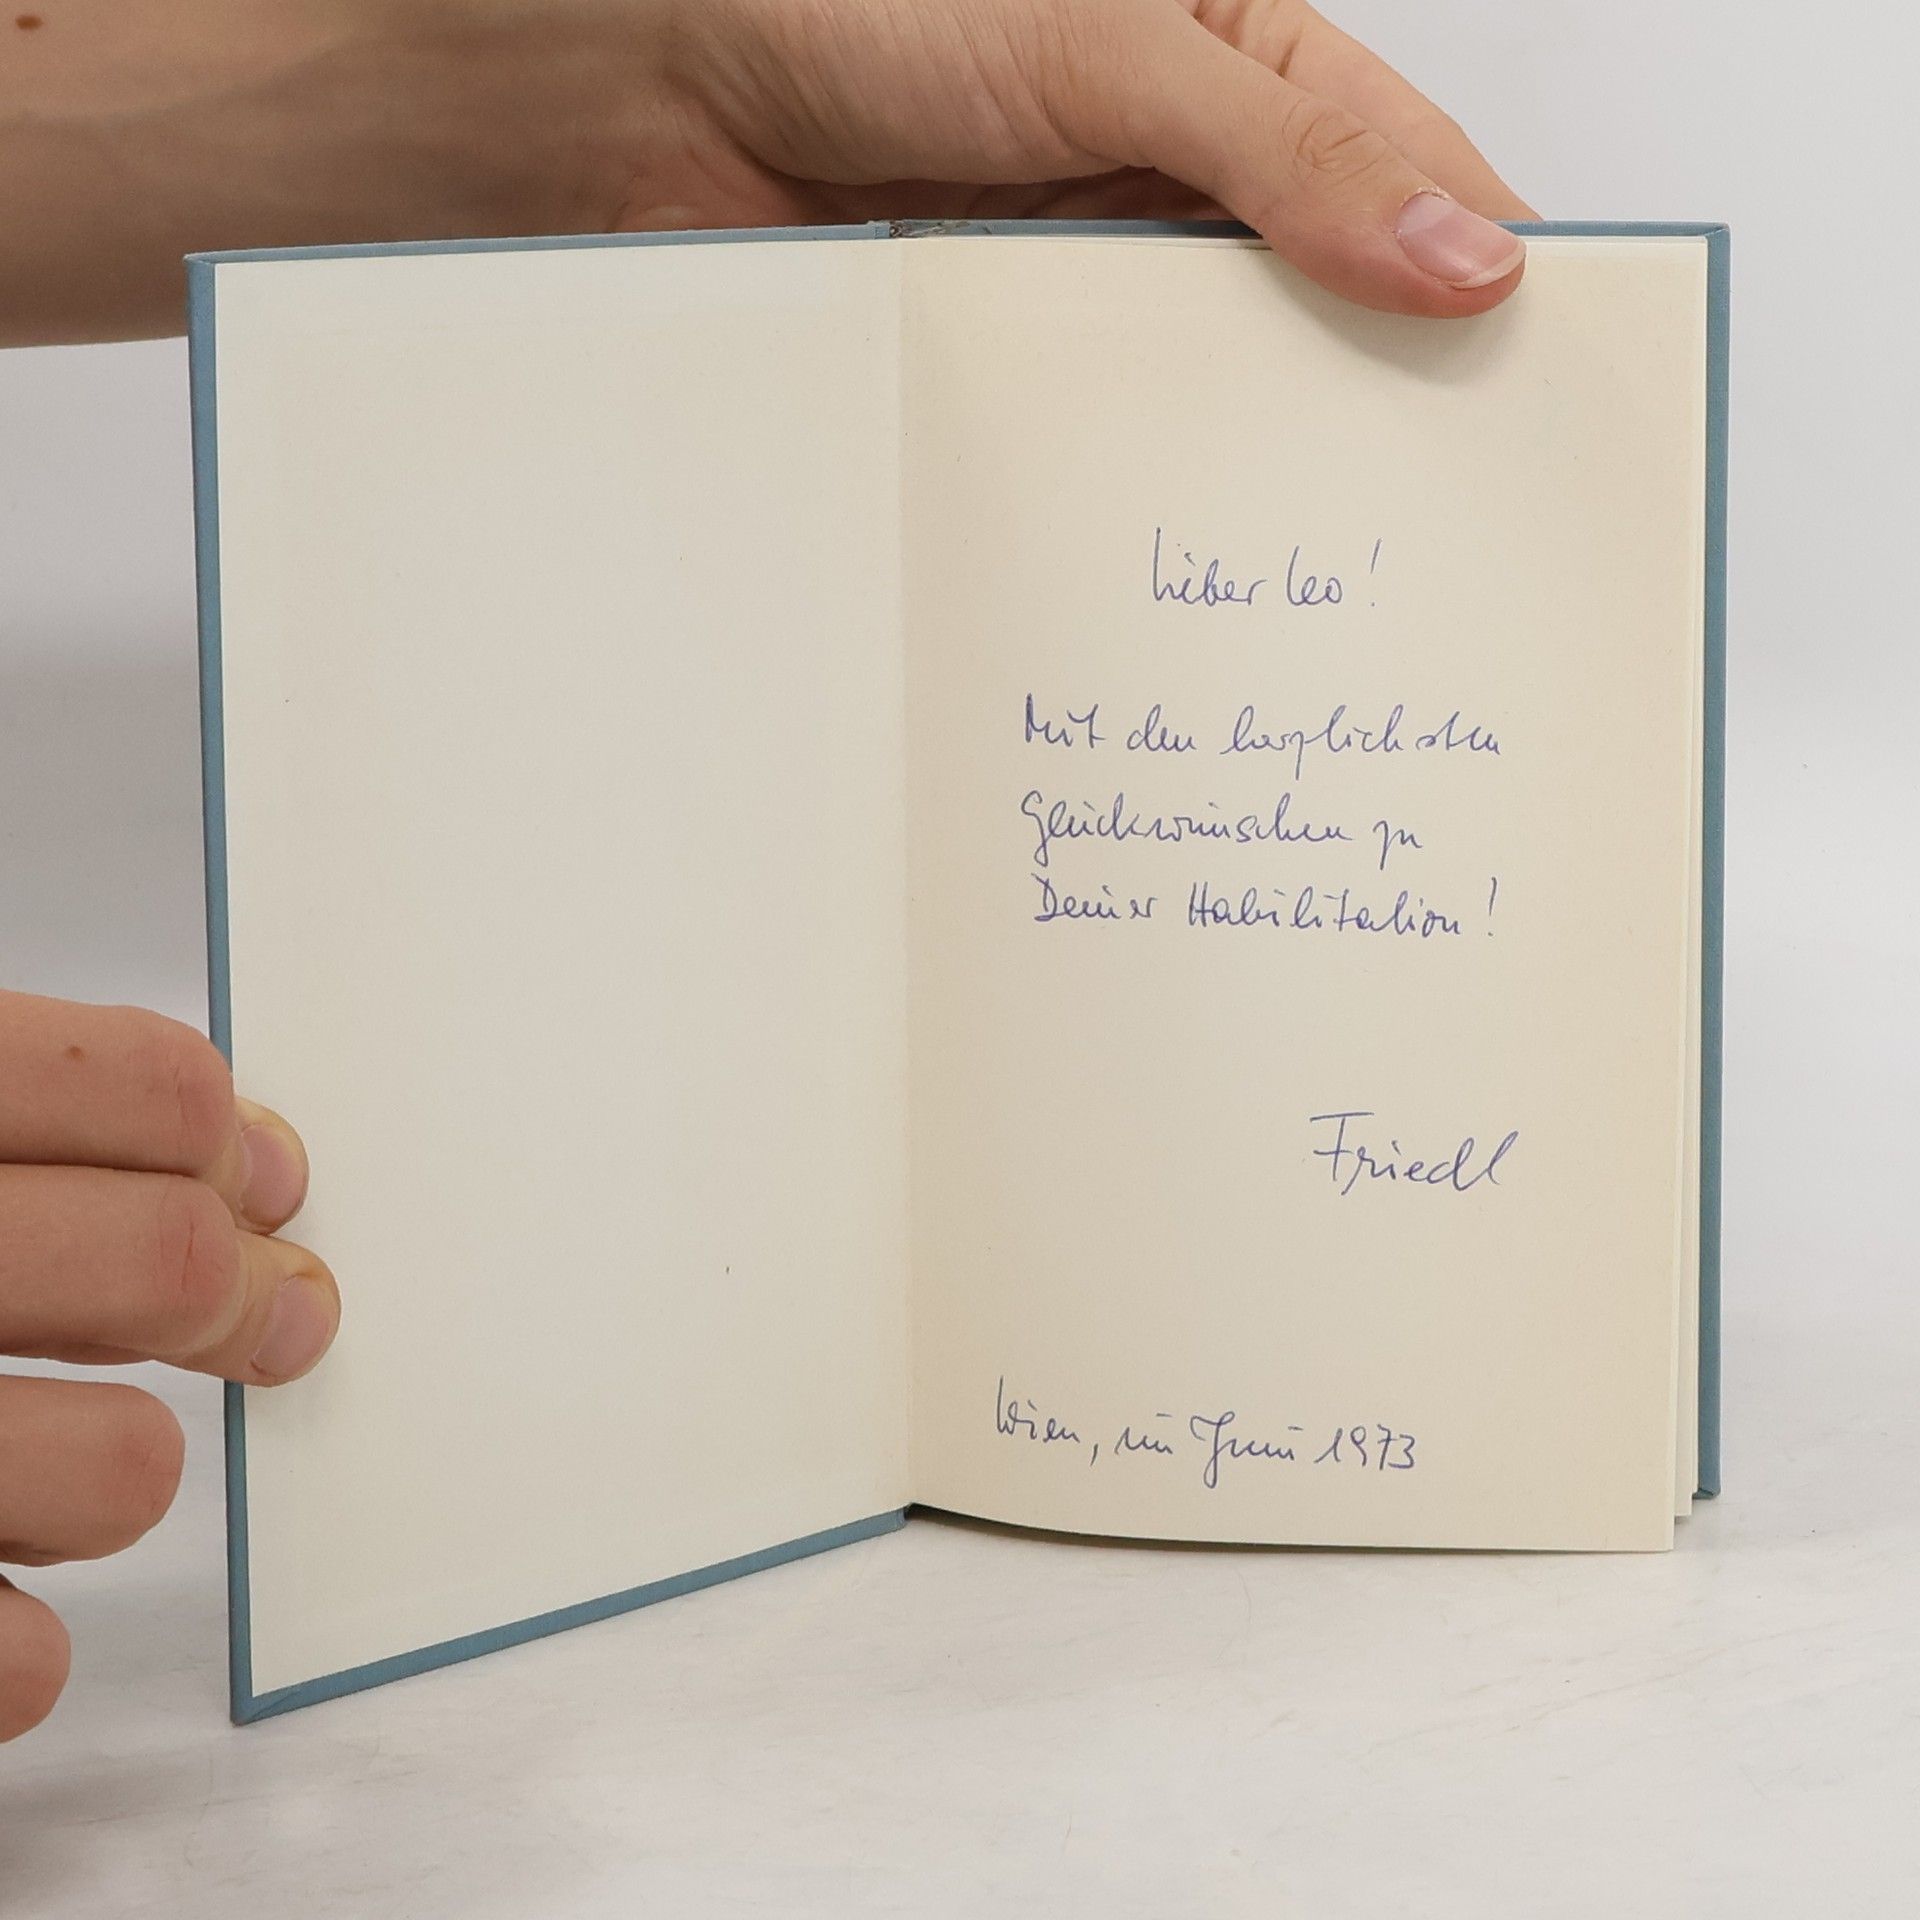 Lieber Leo!
Mit den herzlichsten
Glückwünschen zu
Deiner Habilitation!
Friedl
Wien, im Juni 1973